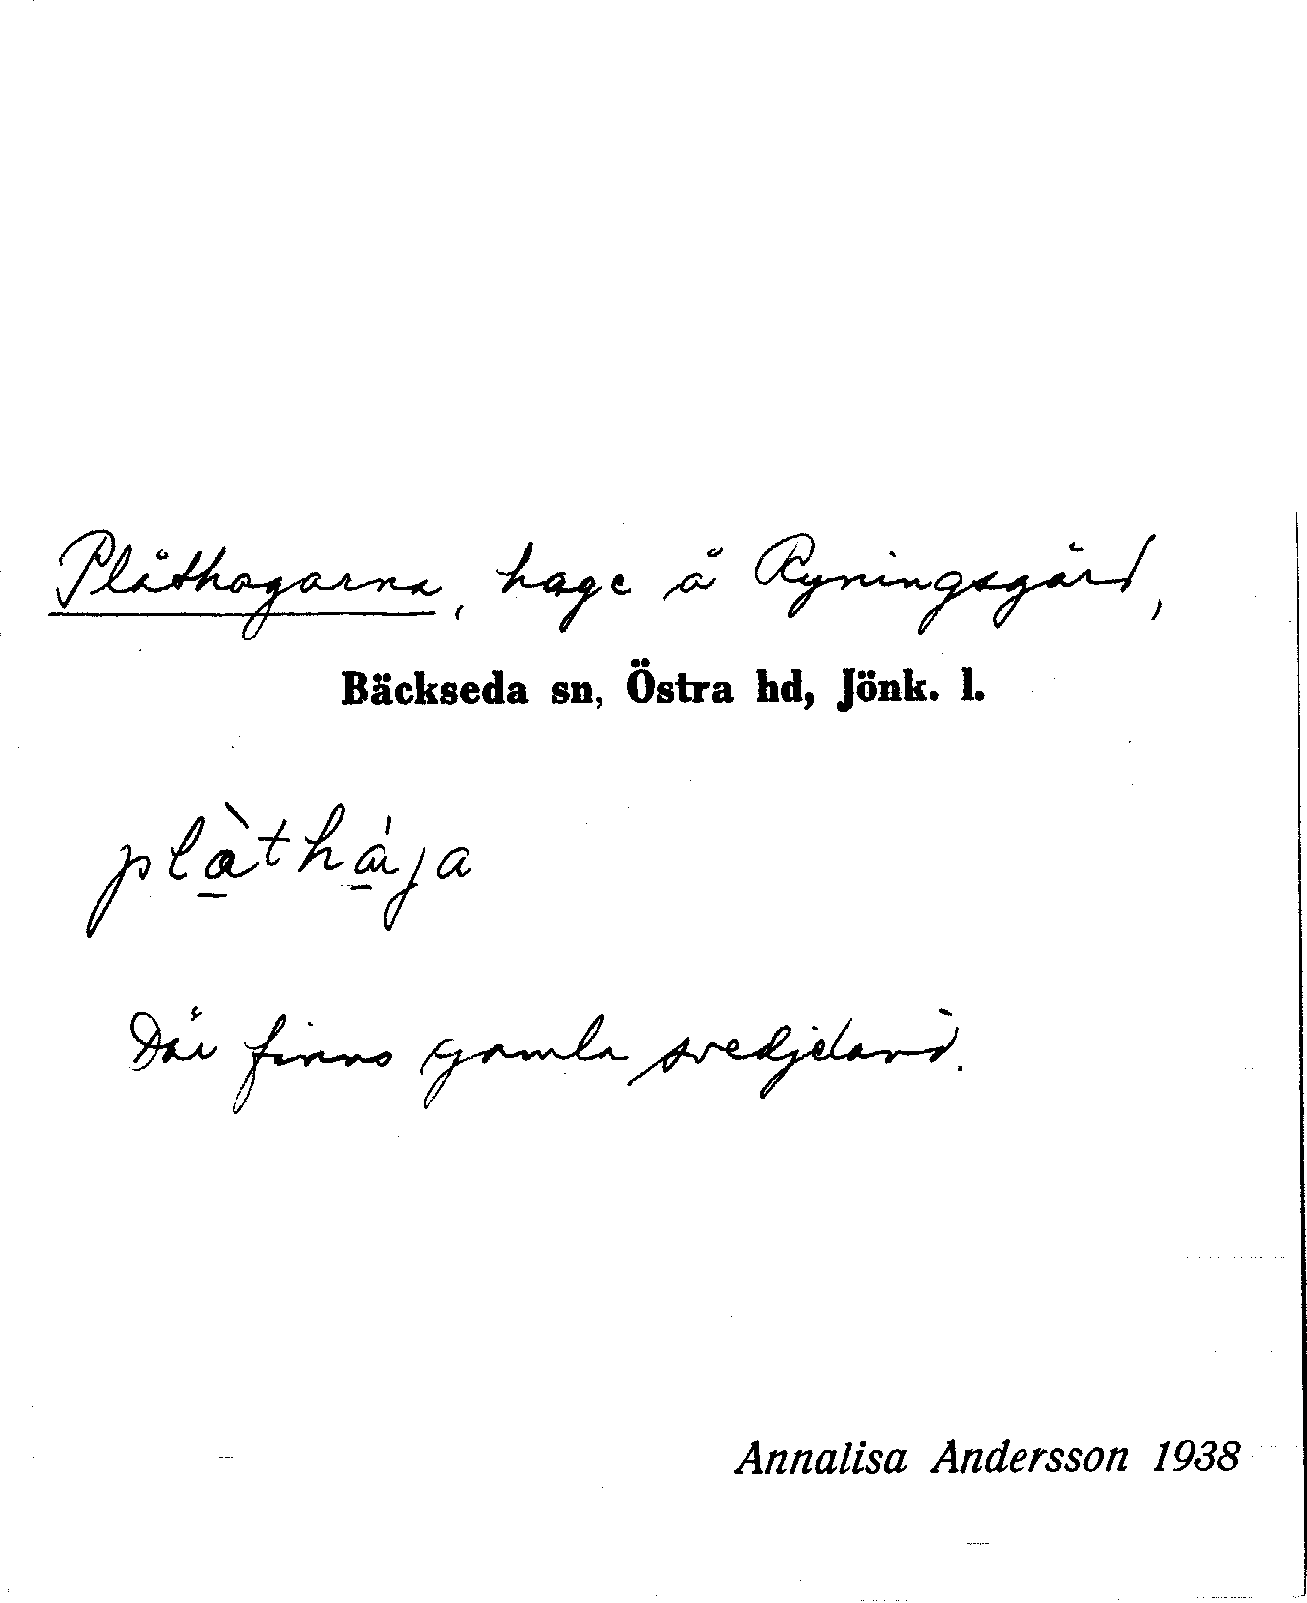 Plåthagarna, hage å Ryningsgård,
Bäckseda sn, Östra hd, Jönk. l.
plàtháɡa
Där finns gamla svedjeland.
Annalisa Andersson 1938